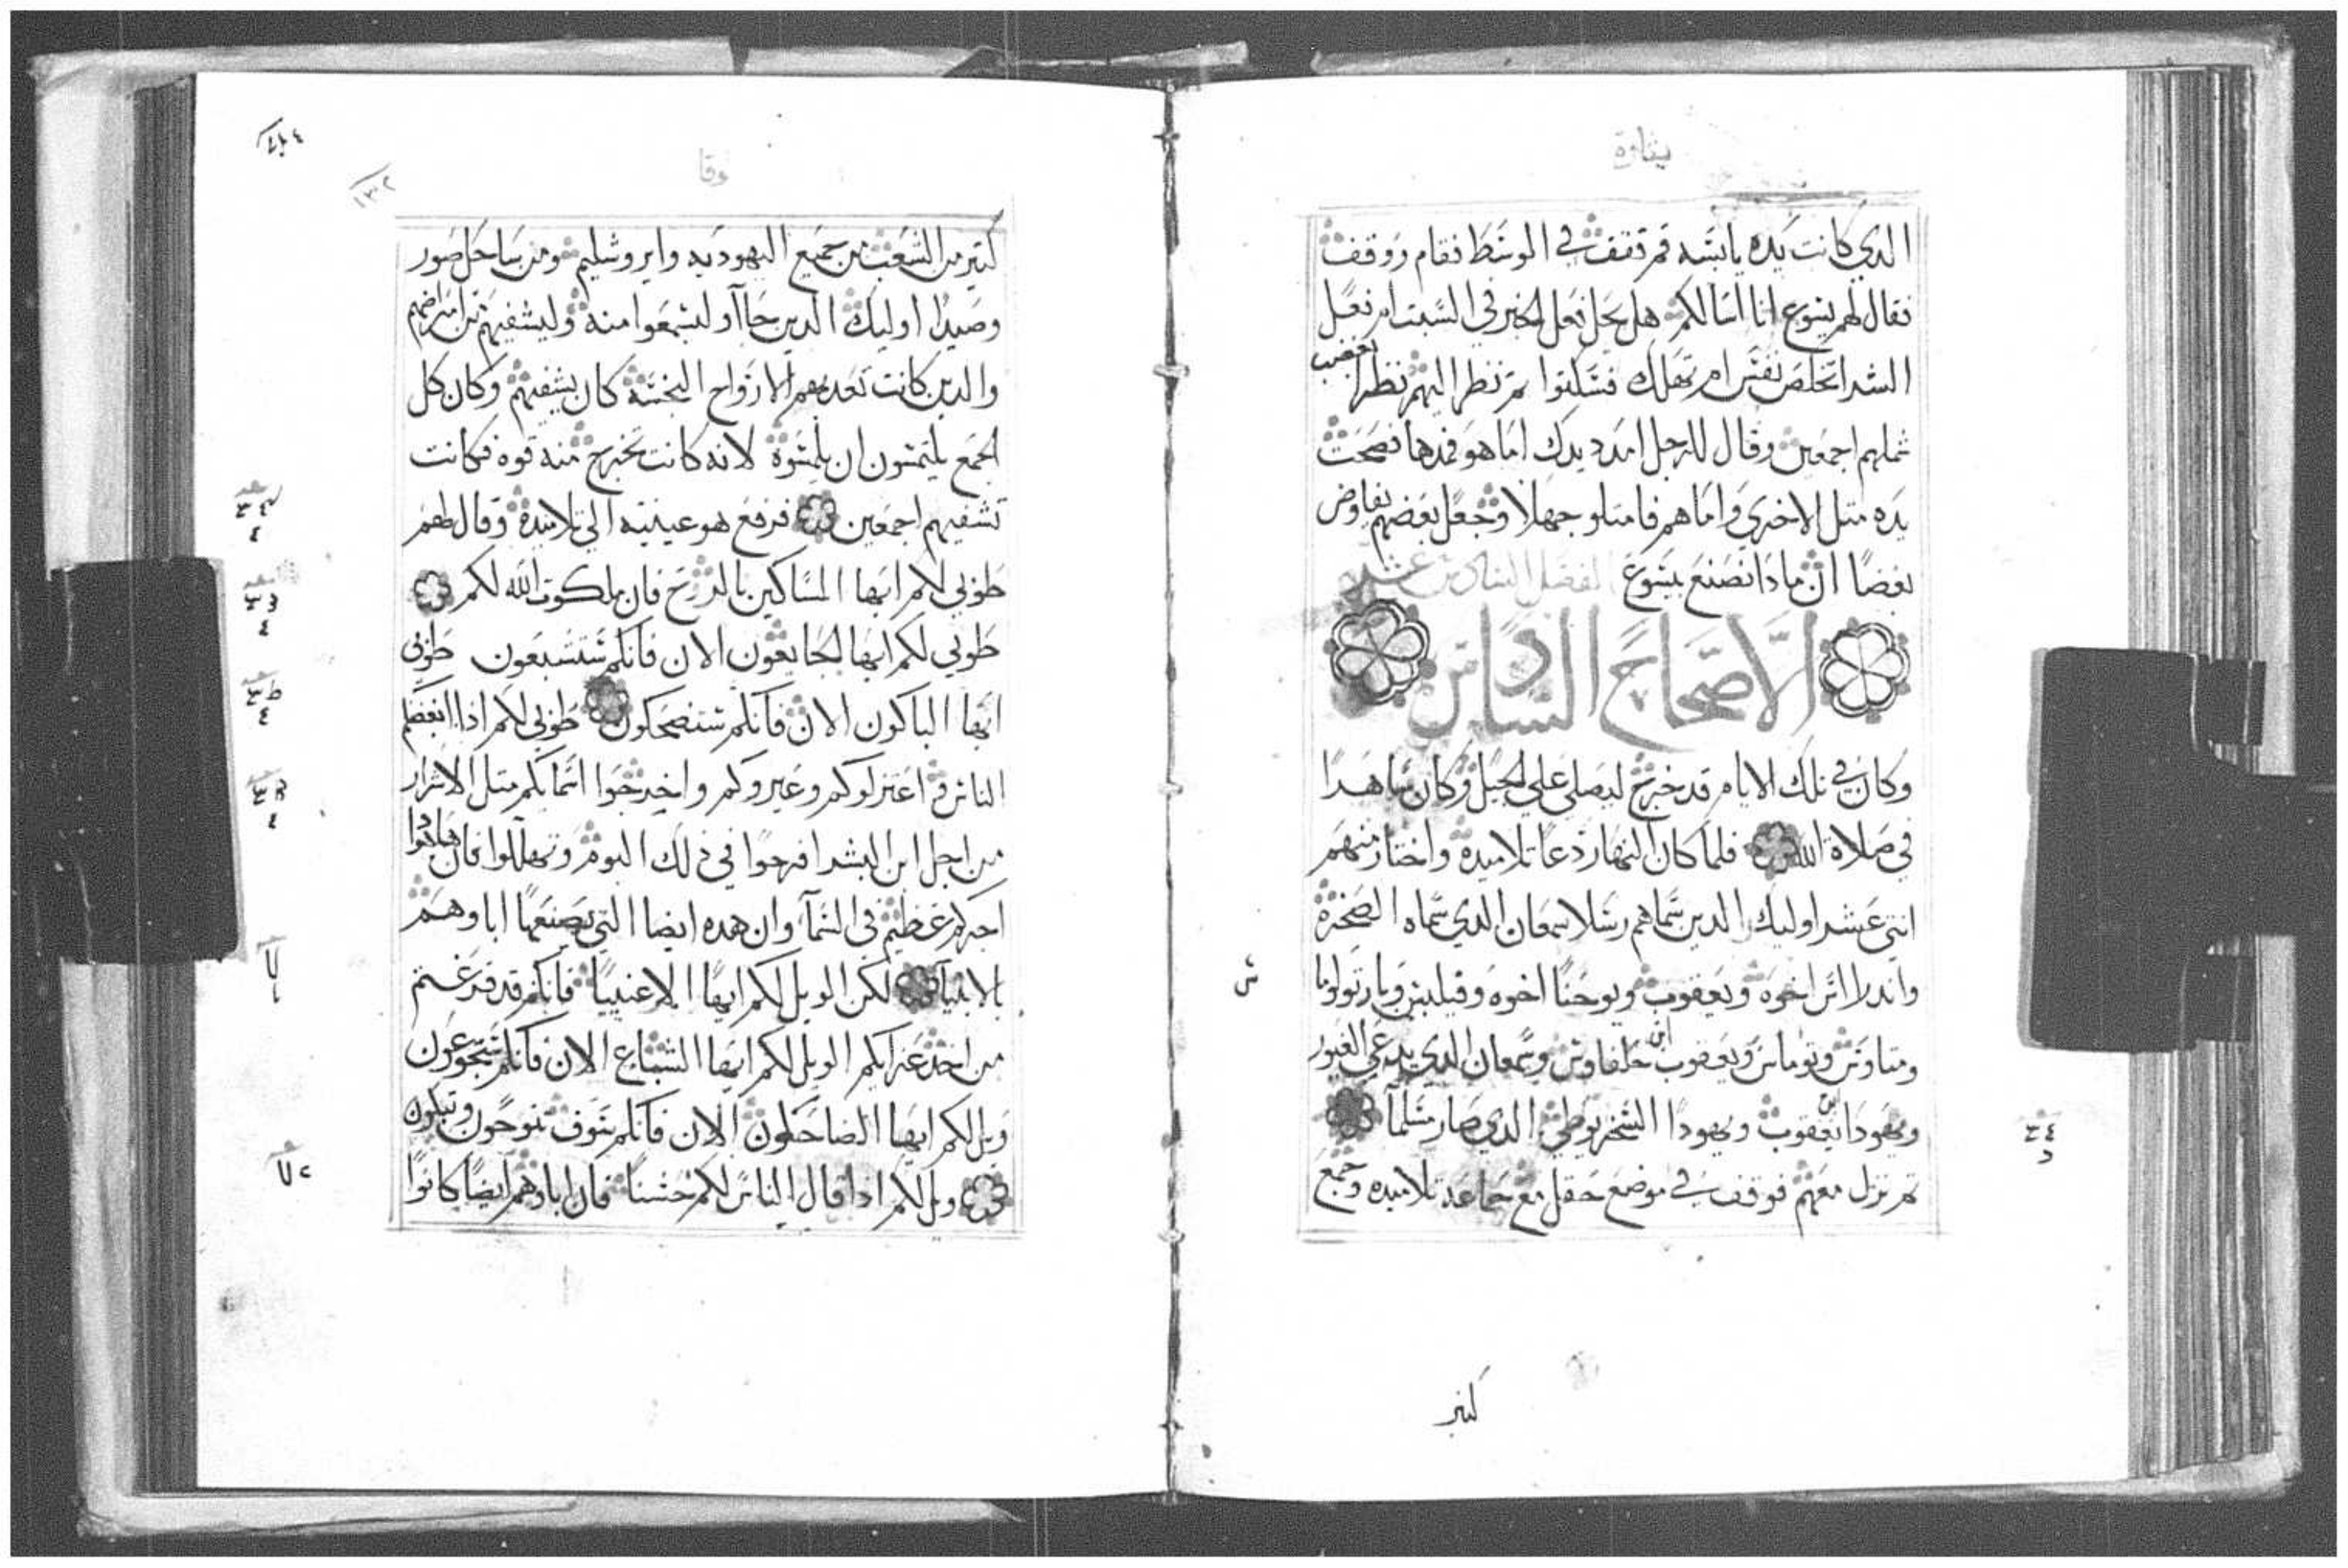 بشارة
الدي كانت يده يابسه قم فقف في الوسط فقام ووقف
فقال لهم يسوع انا اسالكم هل يحل فعل الخير في السبت ام فعل
الشر اتخلص نفس ام تهلك فسكتوا تم نظر اليهم نظرا بغضب
شملهم اجمعين وقال للرجل امدد يدك اما هو فمدها فصحت
يده متل الاخري واما هم فامتلو جهلا وجعل بعضهم يفاوض
بعضا ان مادا نصنع بيسوع الفصل السادس عشر
الاصحاح السادس
وكان في تلك الايام قد خرج ليصلي علي الجبل وكان ساهدا
في صلاة الله فلما كان النهار دعا تلاميده واختار منهم
اتني عشر اوليك الدين سماهم رسلا سمعان الدي سماه الصخرة
واندراس اخوه ويعقوب ويوحنا اخوه وفيلبس وبارتولوما
ومتاوس وتوماس ويعقوب ابن حلفاوس وسمعان الدي يدعي الغيور
ويهودا ابن يعقوب ويهودا السخريوطي الدي صار مسلما
تم نزل معهم فوقف في موضع حقل مع جماعة تلاميده وجمع
كتير
لوقا
١٣٢
كتير من الشعب من جميع اليهوديه وايروشليم ومن ساحل صور
وصيدا اوليك الدين جاآو ليسمعوا منه وليشفيهم من امراضهم
والدين كانت تعدبهم الارواح النجسة كان يشفيهم وكان كل
الجمع يلتمسون ان يلمسوة لانه كانت تخرج منه قوه فكانت
تشفيهم اجمعين فرفع هو عينيه الي تلاميدة وقال لهم
طوبي لكم ايها المساكين بالروح فان ملكوت الله لكم
طوبي لكم ايها الجايعون الان فانكم ستشبعون طوبي
ايها الباكون الان فانكم ستضحكون طوبي لكم ادا ابغضكم
الناس واعتزلوكم وعيروكم واخرجوا اسمايكم متل الاشرار
من اجل ابن البشر افرحوا في ذلك اليوم وتهللوا فان هاهودا
اجركم عظيم في السمآ وان هده ايضا التي يصنعها اباوهم
بالانبيآ لكن الويل لكم ايها الاغنييا فانكم قد فرغتم
من اخد عزايكم الويل لكم ايها الشباع الان فانكم ستجوعون
ويل لكم ايها الضاحكون الان فانكم سوف تنوحون وتبكون
ويل لكم اذا قال الناس لكم حسنا فان اباوهم ايضا كانوا